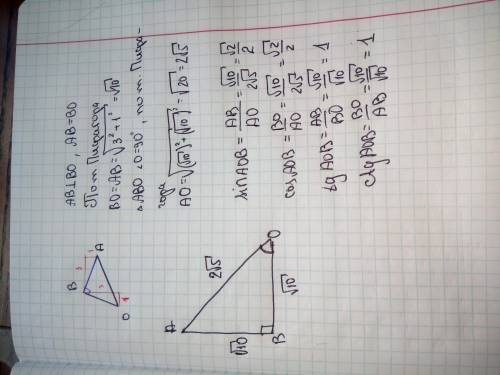 AB⊥BO, AB=BO
По т. Пифагора
BO=AB=√3²+1²=√10
△ABO ∠O=90°, по т. Пифа-
гора
AO=√(√10)²+(√10)²=√20=2√5
sin AOB=AB/AO=√10/2√5=√2/2
cos AOB=BO/AO=√10/2√5=√2/2
tg AOB=AB/BO=√10/√10=1
ctg AOB=BO/AB=√10/√10=1
B
A
O
3
1
3
1
A
2√5
O
√10
√10
B